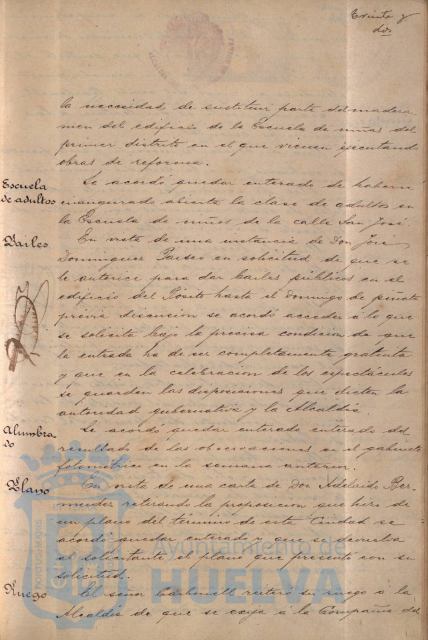 Treinta y
dos
la necesidad de sustituir parte del madera
men del edificio de la Escuela de niñas del
primer distrito en el que vienen ejecutando
obras de reforma.
Escuela
de adultos
Se acordó quedar enterado de haberse
inaugurado abierto la clase de adultos en
la Escuela de niños de la calle San José.
Bailes
En vista de una instancia de Don José
Dominguez en solicitud de que se
le autorice para dar bailes públicos en el
edificio del Pósito hasta el domingo de piñata
previa discusión se acordó acceder á lo que
se solicita bajo la precisa condicion de que
la entrada ha de ser completamente gratuita
y que en la celebracion de los espectáculos
se guarden las disposiciones que dicten la
autoridad gubernativa y la Alcaldía.
Alumbra
do
Se acordó quedar enterado enterado del
resultado de las observaciones en el gabinete
fotométrico en la semana anterior.
Plano
En vista de una carta de Don Adelardo Ber
mudez retirando la proposicion que hizo de
un plano del termino de esta Ciudad se
acordó quedar enterado y que se devuelva
al solicitante el plano que presentó con su
solicitud.
Ruego
El señor Carbonell reiteró su ruego á la
Alcaldía de que se exija á la Compañia del
Ayuntamiento de
HUELVA